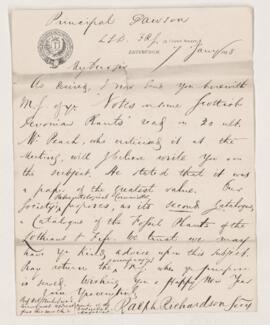 Principal Dawson
LLD. FRS.
EDINBURGH,
7 Jany
My dear Sir,
As desired, I now send you herewith
MS. of yr. Notes on some Scottish
Devonian Plants read on 20 ult.
Mr Peach, who criticised it at the
Meeting, will I believe write you on
the subject. He stated that it was
a paper of the greatest value. Our
Society proposes, as its second Catalogue,
a Catalogue of the Fossil Plants of the
Lothians & Fife. We trust we may
have yr. kind advice upon this subject.
Pray return the MS. when yr purpose
is served. Wishing you a Happy New Year
I am Yours
Ralph Richardson